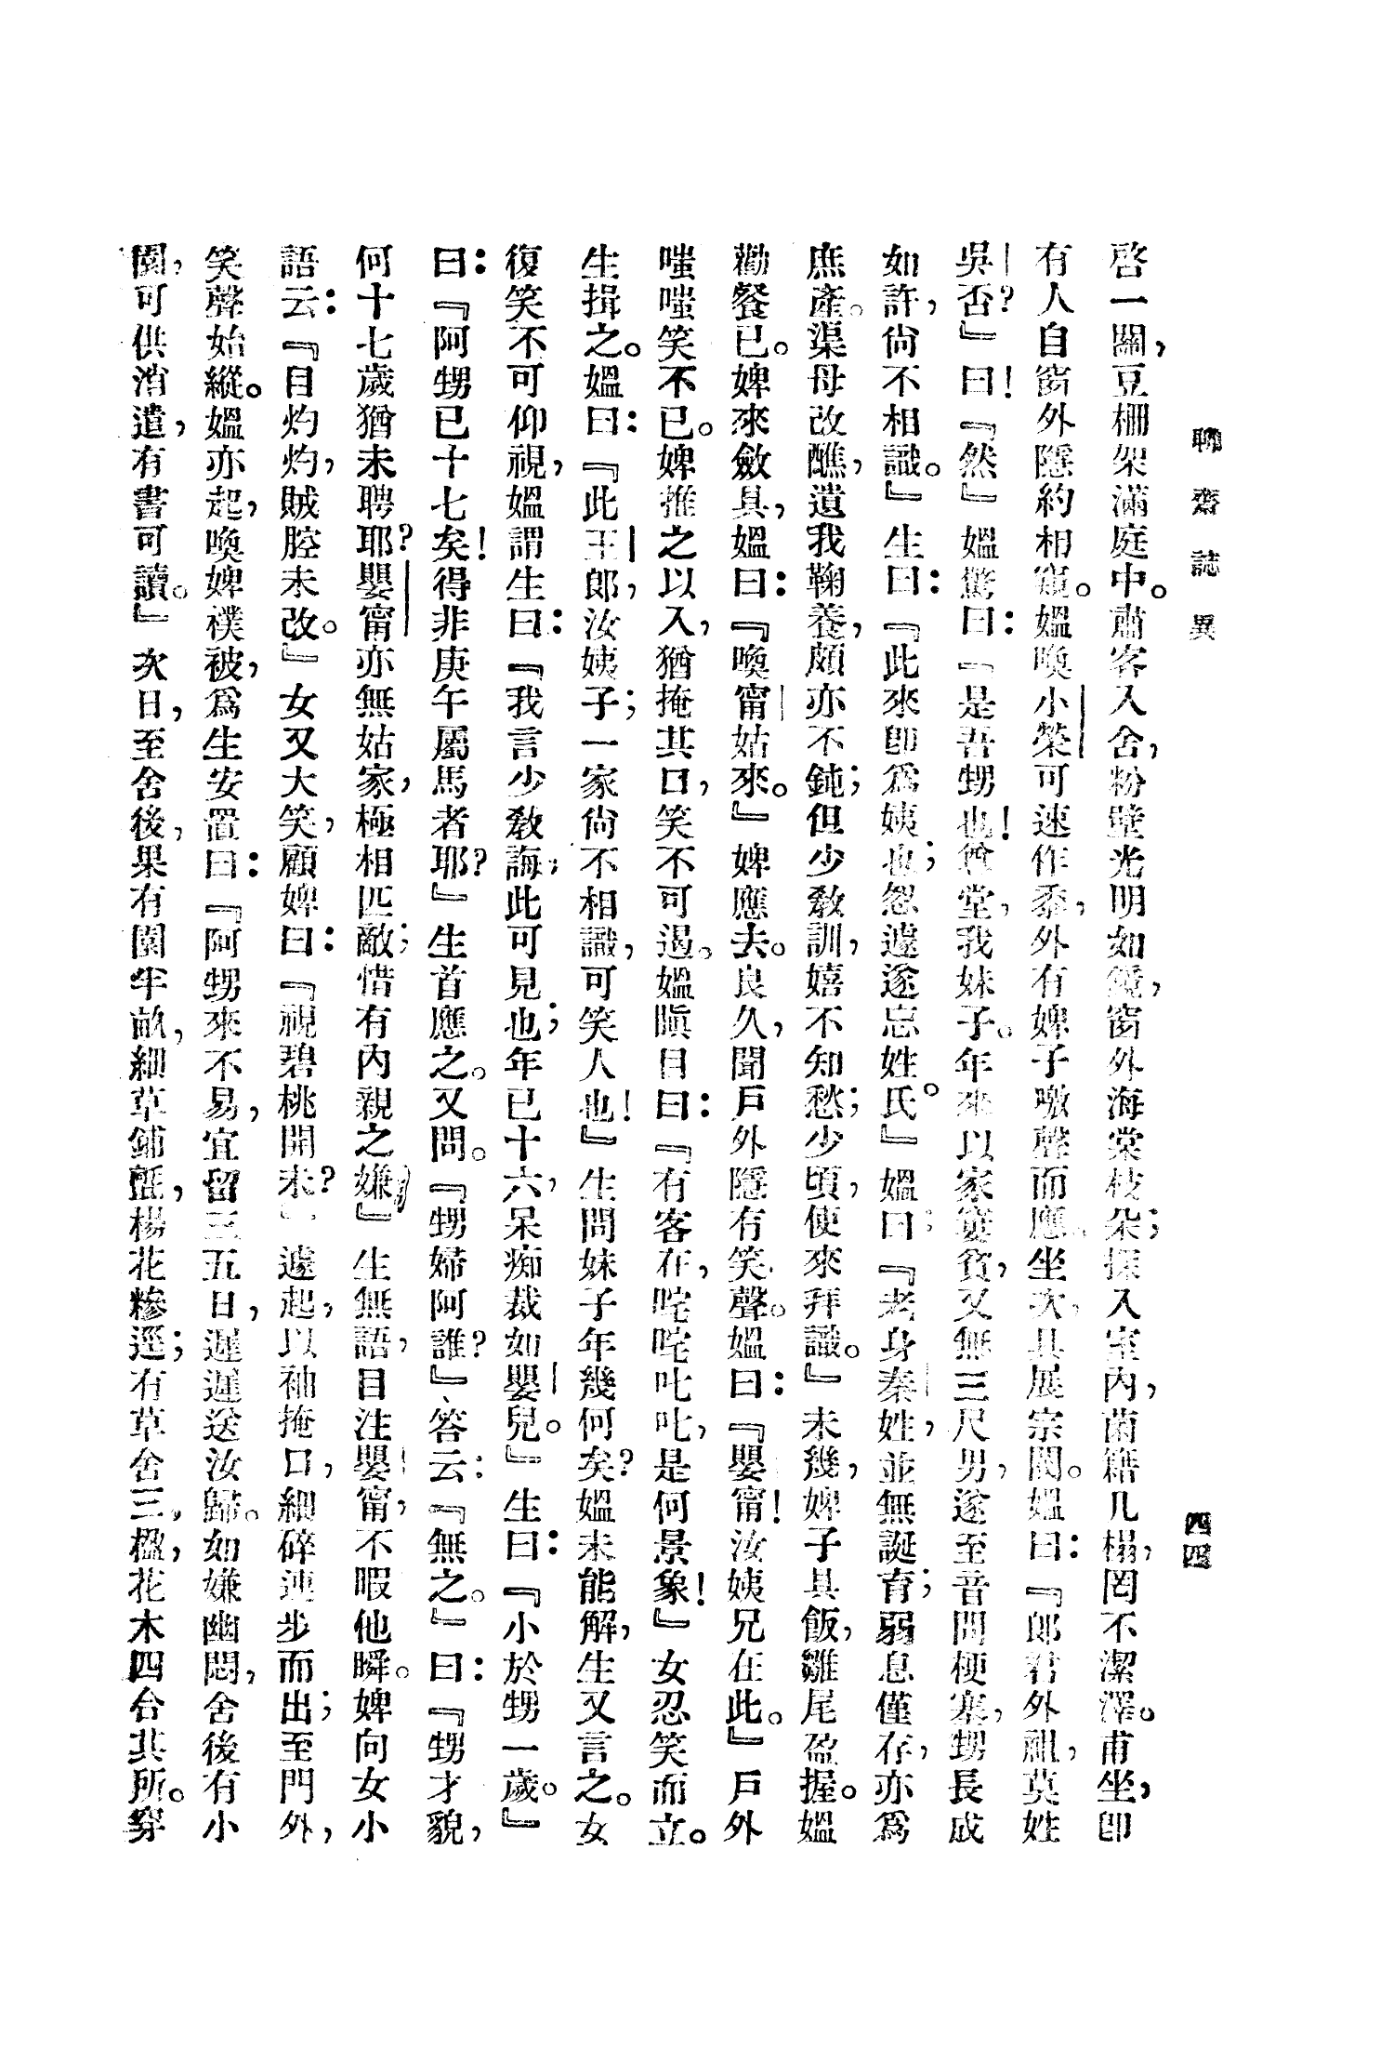 聊齋誌異
四四
啓一關，豆棚架滿庭中。肅客入舍，粉壁光明如鏡，窗外海棠枝朵；探入室內，茵籍几榻，罔不潔澤。甫坐，卽
有人自窗外隱約相窺。媼喚小榮可速作黍，外有婢子噭聲而應。坐次，具展宗閥。媼曰：『郎君外祖，莫姓
吳否？』曰！『然』媼驚曰：『是吾甥也！尊堂，我妹子。年來以家窶貧，又無三尺男，遂至音問梗塞，甥長成
如許，尙不相識。』生曰：『此來卽爲姨也；怱遽遂忘姓氏。』媼曰：『老身秦姓，並無誕育；弱息僅存，亦爲
庶產。渠母改醮，遺我鞠養，頗亦不鈍；但少敎訓，嬉不知愁；少頃，使來拜識。』未幾，婢子具飯，雛尾盈握。媼
勸餐已。婢來斂具，媼曰：『喚甯姑來。』婢應去。良久，聞戶外隱有笑聲。媼曰：『嬰甯！汝姨兄在此。』戶外
嗤嗤笑不已。婢推之以入，猶掩其口，笑不可遏。媼瞋目曰：『有客在，咤咤叱叱，是何景象！』女忍笑而立。
生揖之。媼曰：『此王郎，汝姨子；一家尙不相識，可笑人也！』生問妹子年幾何矣？媼未能解，生又言之。女
復笑不可仰視，媼謂生曰：『我言少敎誨，此可見也；年已十六，呆痴裁如嬰兒。』生曰：『小於甥一歲。』
曰：『阿甥已十七矣！得非庚午屬馬者耶？』生首應之。又問。『甥婦阿誰？』、答云：『無之。』曰：『甥才貌，
何十七歲猶未聘耶？嬰甯亦無姑家，極相匹敵；惜有內親之嫌』生無語，目注嬰甯，不暇他瞬。婢向女小
語云：『目灼灼，賊腔未改。』女又大笑，顧婢曰：『視碧桃開未？』遽起，以袖掩口，細碎連步而出；至門外，
笑聲始縱。媼亦起，喚婢襆被，爲生安置曰：『阿甥來不易，宜留三五日，遲遲送汝歸。如嫌幽悶，舍後有小
園，可供消遣，有書可讀。』次日，至舍後，果有園半畝，細草鋪氈，楊花糝逕；有草舍三，楹，花木四合其所。穿